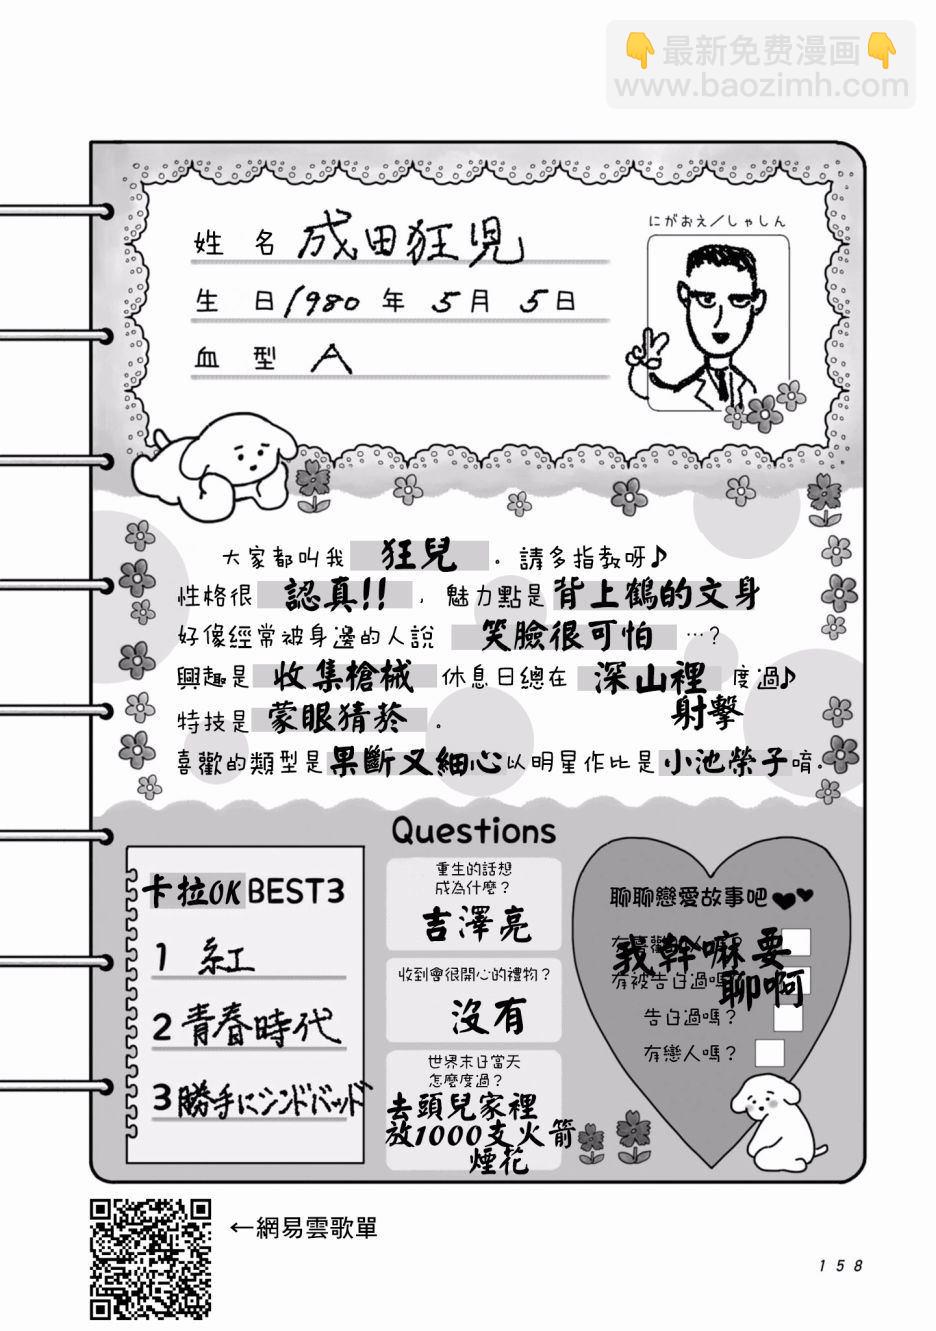 👇最新免费漫画👇
www.baozimh.com
にがおえ/しゃしん
姓 名 成田狂児
生 日 1980 年 5 月 5 日
血 型 A
大家都叫我 狂兒 。請多指教呀♪
性格很 認真!! ，魅力點是 背上鶴的文身
好像經常被身邊的人說 笑臉很可怕 …？
興趣是 收集槍械 休息日總在 深山裡 度過♪
射擊
特技是 蒙眼猜菸 。
喜歡的類型是 果斷又細心 以明星作比是 小池榮子 唷。
Questions
卡拉OK BEST3
1 紅
2 青春時代
3 勝手にシンドバッド
重生的話想
成為什麼？
吉澤亮
收到會很開心的禮物？
沒有
世界末日當天
怎麼度過？
去頭兒家裡
放1000支火箭
煙花
聊聊戀愛故事吧
我幹嘛要
聊啊
有被告白過嗎
告白過嗎？
有戀人嗎？
←網易雲歌單
158